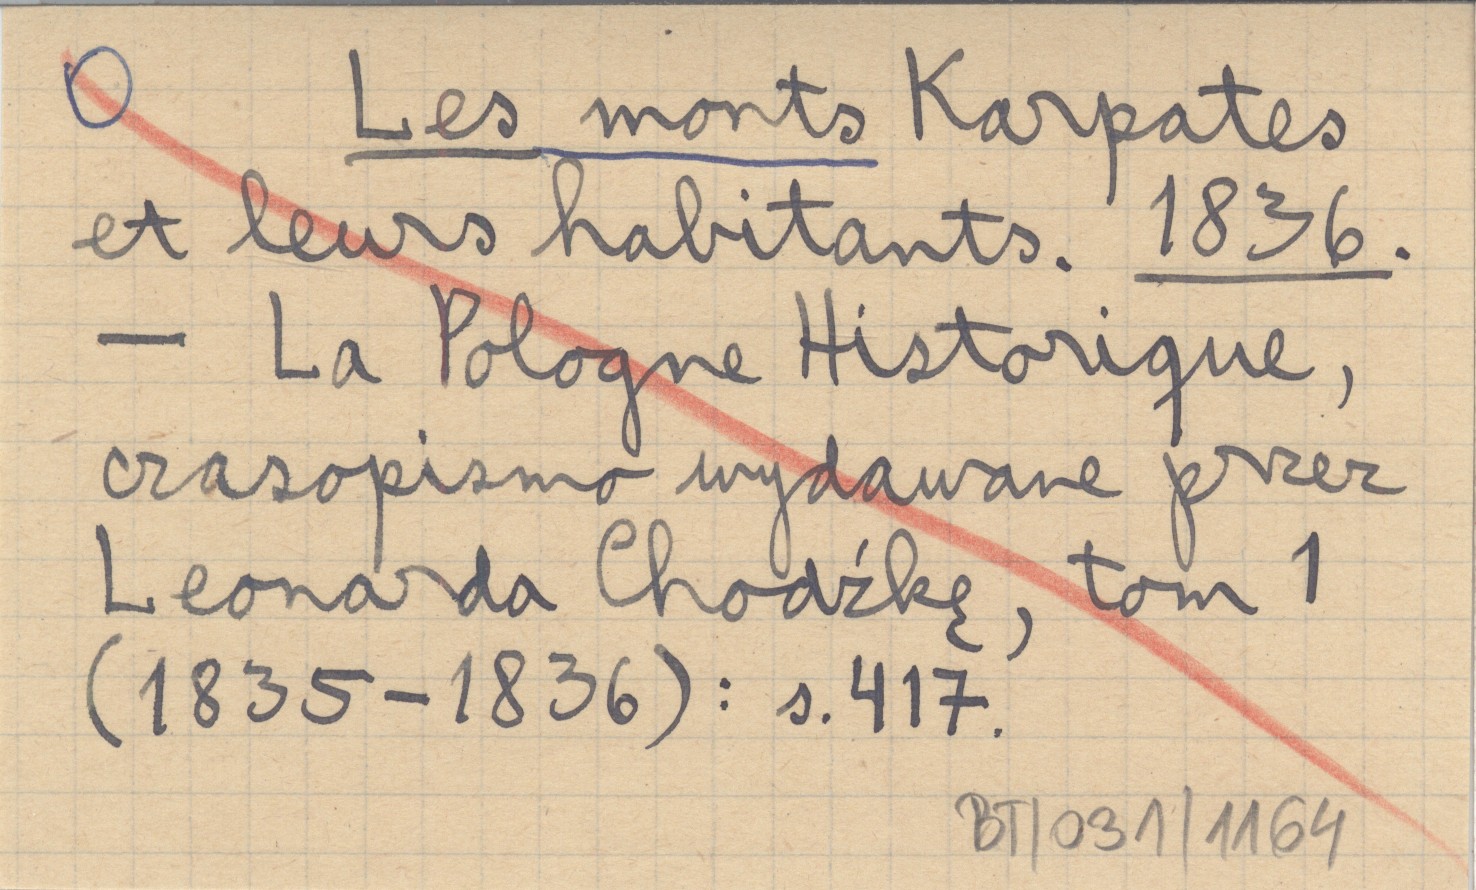 Les monts Karpates
et leurs habitants. 1836.
— La Pologne Historique,
czasopismo wydawane przez
Leonarda Chodźkę, tom 1
(1835-1836): s. 417.
BT/031/1164